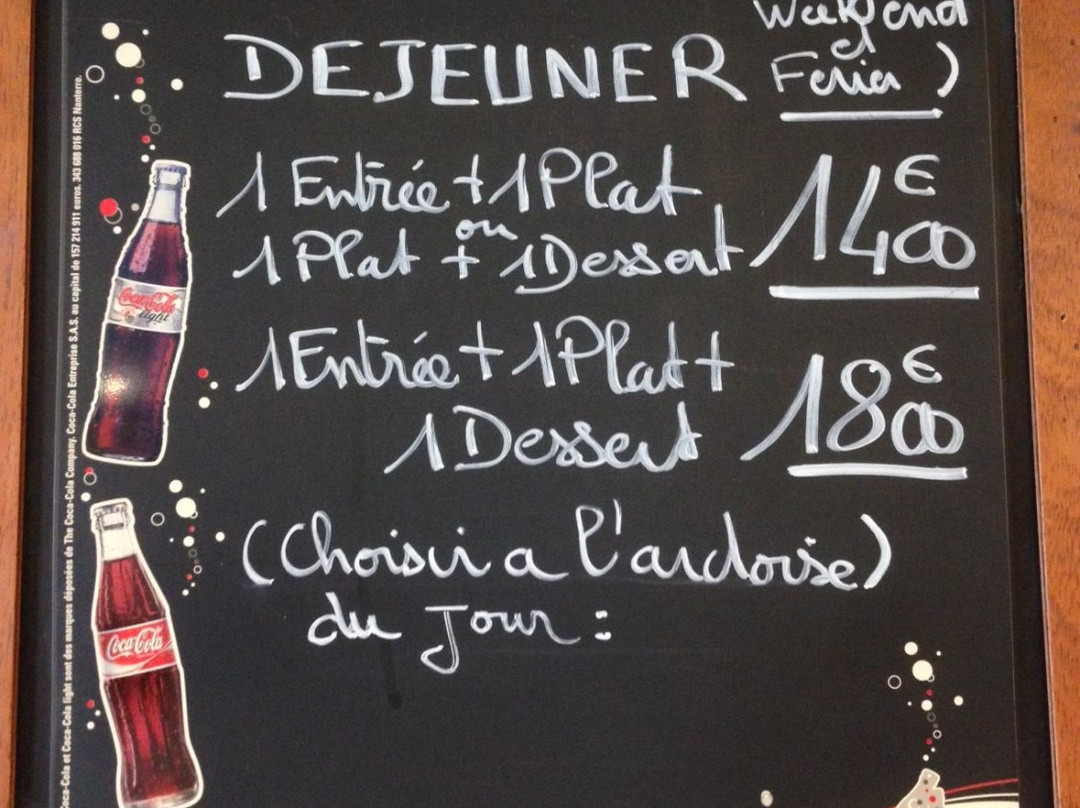 Week end
et
DEJEUNER Ferier )
1 Entrée + 1 Plat 14€00
ou
1 Plat + 1 Dessert
1 Entrée + 1 Plat + 18€00
1 Dessert
(Choisir a l'ardoise)
du Jour :
Coca-Cola
light
Coca-Cola
Coca-Cola et Coca-Cola light sont des marques déposées de The Coca-Cola Company. Coca-Cola Entreprise S.A.S. au capital de 157 214 911 euros. 343 688 016 RCS Nanterre.